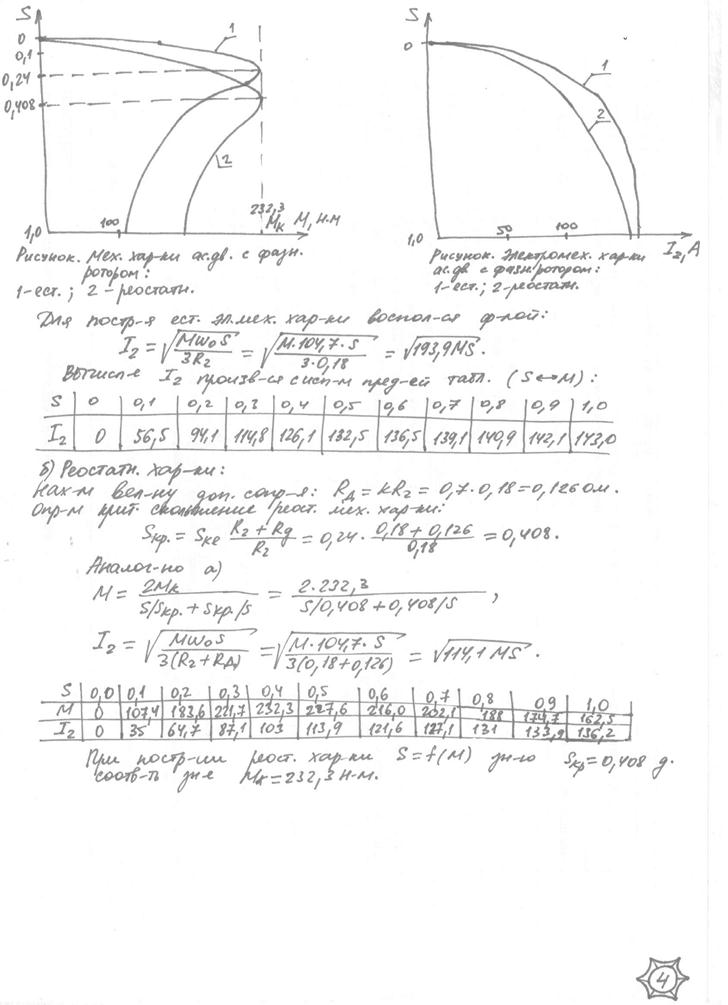 S
0
0,1
0,24
0,408
1,0
100
232,3
Mк M, н.м
1
2
S
0
1,0
50
100
I₂, А
1
2
Рисунок. Мех. хар-ки ас.дв. с фазн.
ротором:
1-ест.; 2-реостатн.
Рисунок. Электромех. хар-ки
ас.дв с фазн.ротором:
1-ест.; 2-реостатн.
Для постр-я ест. эл.мех. хар-ки воспол-ся ф-лой:
I₂ = √(Mω₀S / 3R₂) = √(M·104,7·S / 3·0,18) = √193,9MS.
Вычисл-е I₂ произв-ся с исп-м пред-ей табл. (S↔M):
S 0 0,1 0,2 0,3 0,4 0,5 0,6 0,7 0,8 0,9 1,0
I₂ 0 56,5 94,1 114,8 126,1 132,5 136,5 139,1 140,9 142,1 143,0
б) Реостатн. хар-ки:
Нах-м вел-ну доп. сопр-я: Rд = kR₂ = 0,7·0,18 = 0,126 ом.
Опр-м крит. скольжение реост. мех. хар-ки:
Sкр. = Sке (R₂ + Rд / R₂) = 0,24 · (0,18 + 0,126 / 0,18) = 0,408.
Аналог-но а)
M = 2Mк / (S/Sкр. + Sкр./S) = 2·232,3 / (S/0,408 + 0,408/S) ,
I₂ = √(Mω₀S / 3(R₂+Rд)) = √(M·104,7·S / 3(0,18+0,126)) = √114,1 MS .
S 0,0 0,1 0,2 0,3 0,4 0,5 0,6 0,7 0,8 0,9 1,0
M 0 107,4 183,6 221,7 232,3 227,6 216,0 202,1 188 174,7 162,5
I₂ 0 35 64,7 87,1 103 113,9 121,6 127,1 131 133,9 136,2
При постр-ии реост. хар-ки S = f(M) зн-ю Sкр = 0,408 д.
соотв-ть зн-е Mк = 232,3 н·м.
4